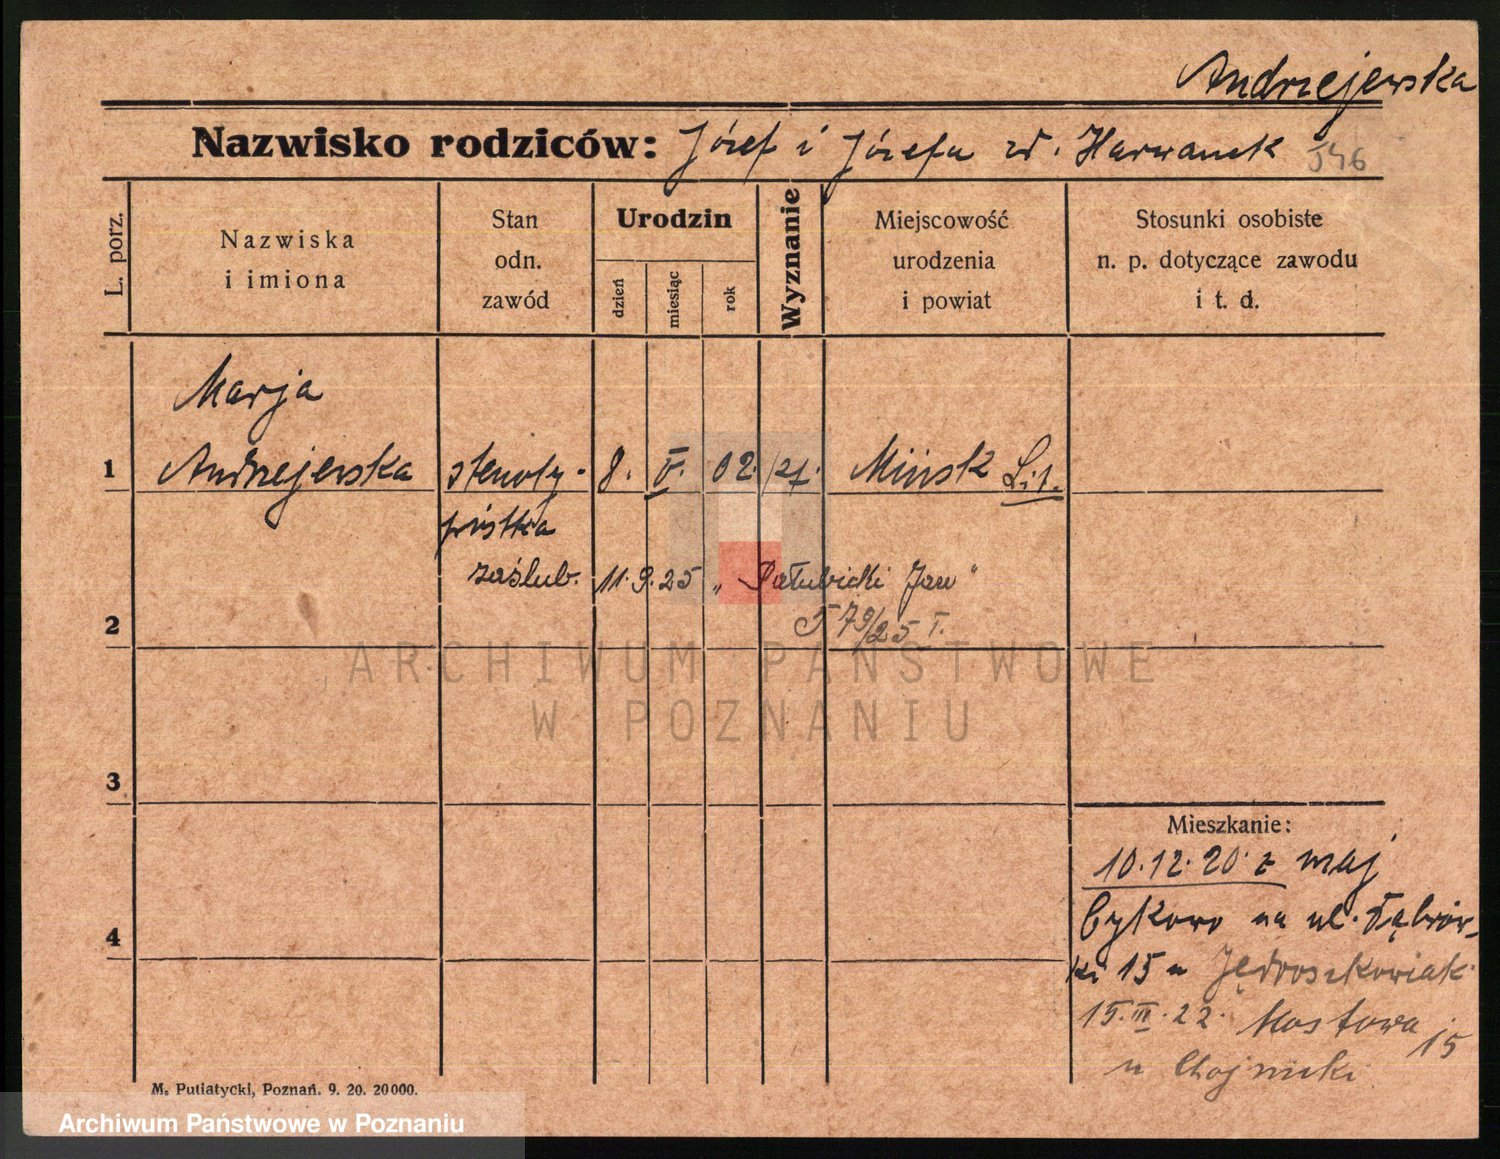 Andrzejewska
Nazwisko rodziców: Józef i Józefa zd. Harwanek 546
L. porz.
Nazwiska
i imiona
Stan
odn.
zawód
Urodzin
dzień
miesiąc
rok
Wyznanie
Miejscowość
urodzenia
i powiat
Stosunki osobiste
n. p. dotyczące zawodu
i t. d.
Marja
1 Andrzejewska stenoty- 8. V. 02. rzk. Mińsk Lit.
pistka
zaślub. 11.9.25 „Pałubicki Jan"
2 579/25 I.
ARCHIWUM PAŃSTWOWE
W POZNANIU
3
Mieszkanie:
10.12.20. z maj
Cykowo na ul. Dąbrów-
4
ki 15 u Jędroszkowiak
15.III.22. Mostowa 15
u Chojnicki
M. Putiatycki, Poznań. 9. 20. 20000.
Archiwum Państwowe w Poznaniu